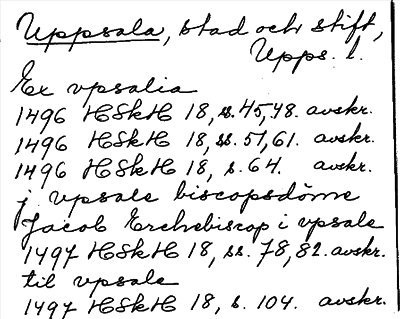 Uppsala, stad och stift,
Upps. l.
Ex vpsalia
1496 HSkH 18, ss. 45, 48. avskr.
1496 HSkH 18, ss. 51, 61. avskr.
1496 HSkH 18, s. 64. avskr.
j vpsale biscopsdöme
Jacob Erchebiscop i vpsale
1497 HSkH 18, ss. 78, 82. avskr.
til vpsale
1497 HSkH 18, s. 104. avskr.